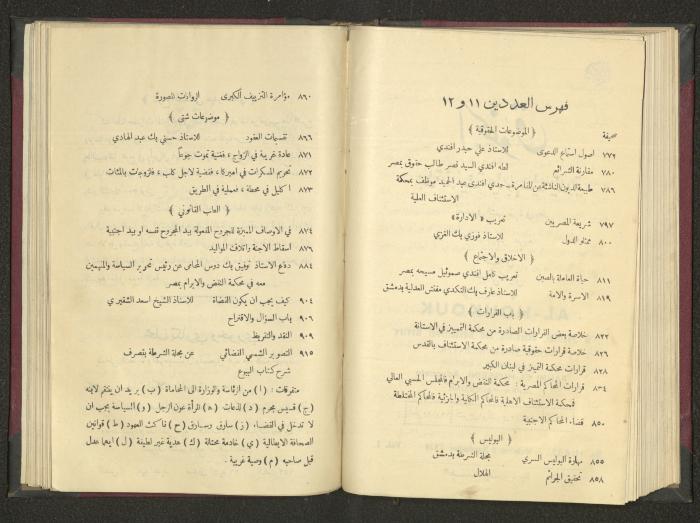 فهرس العددين ١١ و ١٢
صحيفة
﴿ الموضوعات الحقوقية ﴾
٧٧٢ اصول استماع الدعوى للاستاذ علي حيدر افندي
٧٨٠ مقارنة الشرائع لطه افندي السيد نصر طالب حقوق بمصر
٧٨٦ طبيعة الديون الناشئة عن المقامرة - حمدي افندي عبد الحميد موظف بمحكمة
الاستئناف العلية
٧٩٧ شريعة المصريين تعريب « الادارة »
٨٠٠ ممثلو الدول للاستاذ فوزي بك الغزي
﴿ الاخلاق والاجتماع ﴾
٨١١ حياة العاملة بالصين تعريب كامل افندي صموئيل مسيحه بمصر
٨١٩ الاسرة والامة للاستاذ عارف بك النكدي مفتش العدلية بدمشق
﴿ باب القرارات ﴾
٨٢٢ خلاصة بعض القرارات الصادرة من محكمة التمييز في الاستانة
٨٢٦ خلاصة قرارات حقوقية صادرة من محكمة الاستئناف بالقدس
٨٢٨ قرارات محكمة التمييز في لبنان الكبير
٨٣٤ قرارات المحاكم المصرية : محكمة النقض والابرام فالمجلس الحسبي العالي
فمحكمة الاستئناف الاهلية فالمحاكم الكلية والجزئية فالمحاكم المختلطة
٨٥٠ قضاء المحاكم الاجنبية
﴿ البوليس ﴾
٨٥٥ مهارة البوليس السري مجلة الشرطة بدمشق
٨٥٨ تحقيق الجرائم الهلال
٨٦٠ مؤامرة التزييف الكبرى الروايات المصورة
﴿ موضوعات شتى ﴾
٨٦٦ تقسيمات العقود للاستاذ حسني بك عبد الهادي
٨٧١ عادة غريبة في الزواج ، ففنية تموت جوعاً
٨٧٢ تحريم المسكرات في اميركا ، فقضية لاجل كلب ، فالزوجات بالمئات
٨٧٣ اكليل في محطة ، فعملية في الطريق
﴿ العاب القانوني ﴾
٨٧٤ في الاوصاف المميزة للجروح المفعولة بيد المجروح نفسه او بيد اجنبية
٨٧٦ أسقاط الاجنة واتلاف المواليد
٨٨٤ دفاع الاستاذ توفيق بك دوس المحامي عن رئيس تحرير السياسة والمتهمين
معه في محكمة النقض والابرام بمصر
٩٠٤ كيف يجب ان يكون القضاة للاستاذ الشيخ اسعد الشقيري
٩٠٦ باب السؤال والاقتراح
٩٠٩ النقد والتقريظ
٩١٥ التصوير الشمسي القضائي عن مجلة الشرطة بتصرف
شرح كتاب البيوع
متفرقات : (ا) من الرئاسة والوزارة الى المحاماة (ب) يريد ان ينتقم لابنه
(ج) قسيس مجرم (د) لذعات (ه) المرأة عون الرجل (و) السياسة يجب ان
لا تدخل في القضاء (ز) سارق وسارق (ح) ناكث العهود (ط) قوانين
الصحافة الايطالية (ي) خادمة محتالة (ك) هدية غير لطيفة (ل) ايهما عدل
قبل صاحبه (م) وصية غريبة .